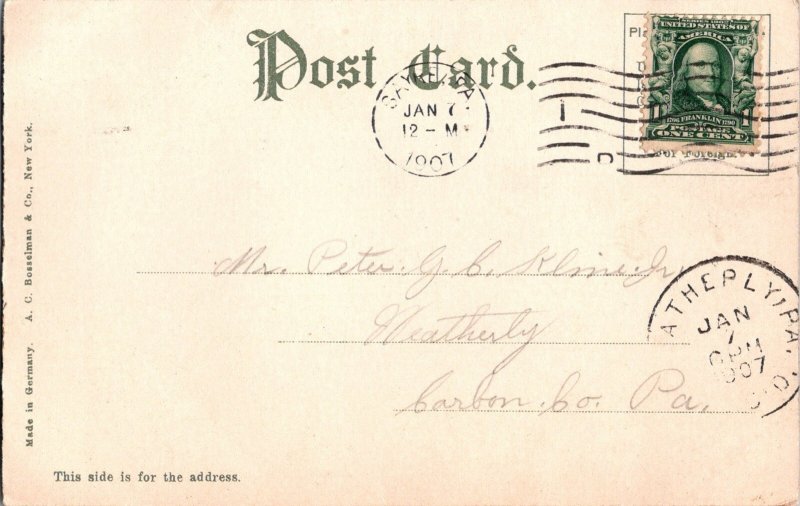 Post Card.
SAYRE, PA.
JAN 7
12 - M
1907
SERIES 1902
UNITED STATES OF
AMERICA
1706 FRANKLIN 1790
POSTAGE
1 ONE CENT 1
For Foreign
Mr. Peter. G. C. Kline. Jr,
Weatherly
Carbon. Co. Pa,
ATHERLY, PA,
JAN
7
6 PM
1907
Made in Germany. A. C. Bosselman & Co., New York.
This side is for the address.